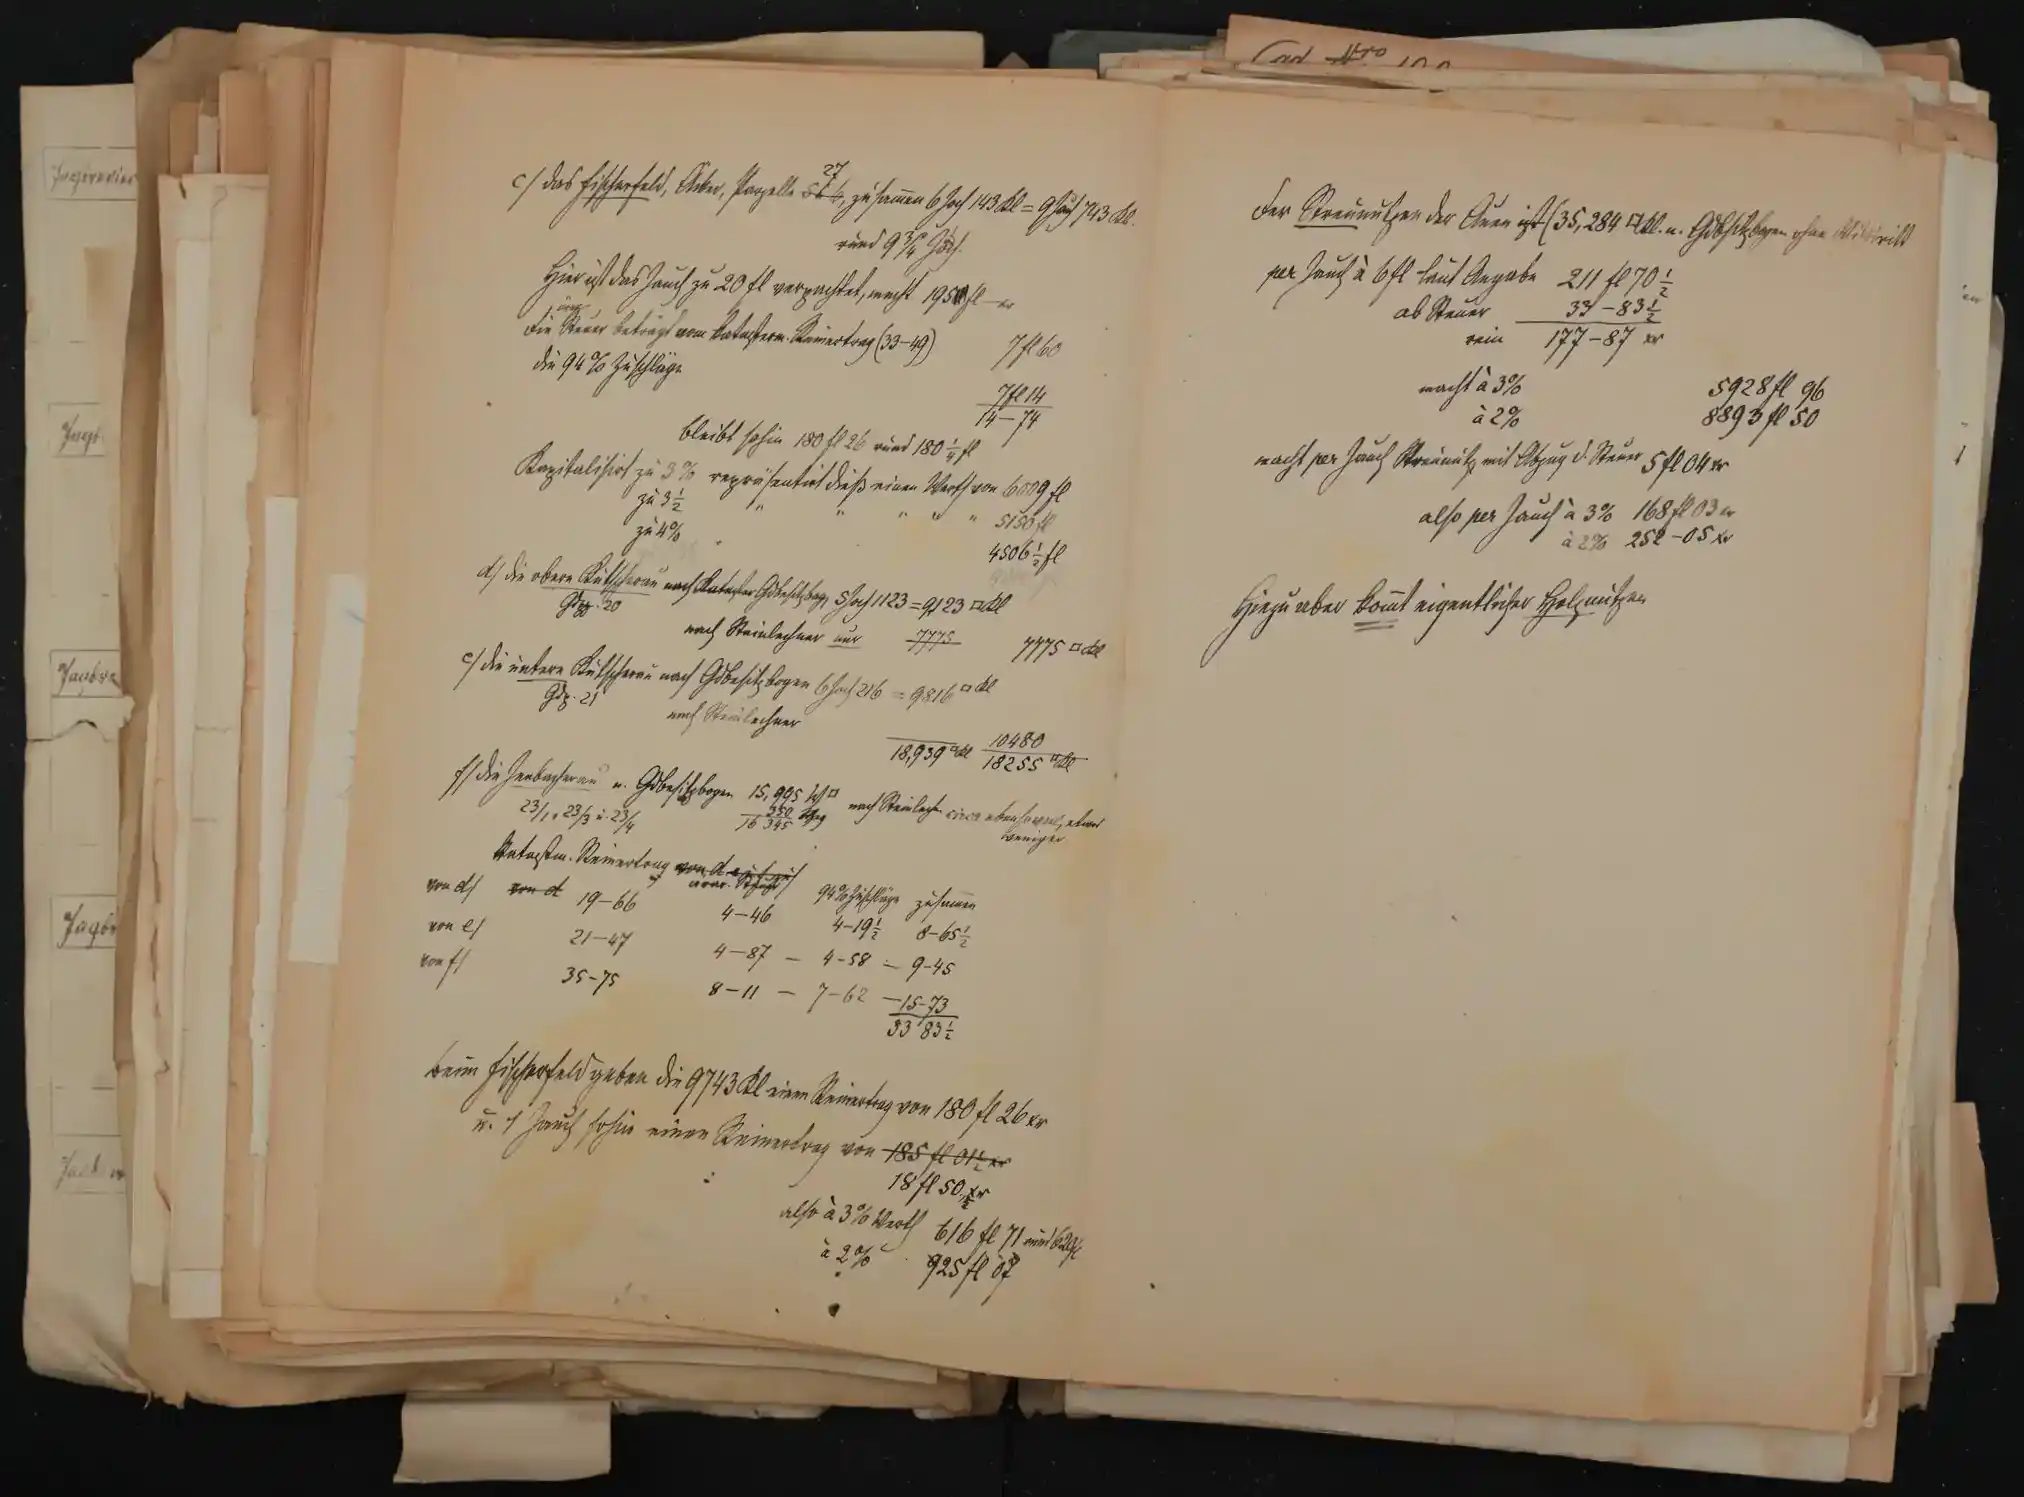 c/ das Fischerfeld, Äcker, Parzelle 27, zusammen 6 Joch 143 Kl = 9 Jauch 743 Kl.
rund 9 3/4 Jauch.
Hier ist das Jauch zu 20 fl verpachtet, macht 195 fl — xr
Die Steuer beträgt vom Katastern. Reinertrag (33–49) 7 fl 60
die 94% Zuschläge 7 fl 14
14–74
bleibt sohin 180 fl 26 rund 180 1/4 fl
Kapitalisirt zu 3% repräsentirt dieß einen Werth von 6009 fl
zu 3 1/2 " " " " " 5150 fl
zu 4% 4506 1/2 fl
d/ die obere Kutscherau nach Kataster Gdbesitzbog. 5 Joch 1123 = 9123 □Kl
Gdp. 20
nach Steinlechner nur 7775 7775 □Kl
e/ die untere Kutscherau nach Gdbesitzbogen 6 Joch 216 = 9816 □Kl
Gdp. 21
nach Steinlechner 10480
18,939 □Kl 18255 □Kl
f/ die Jenbacherau n. Gdbesitzbogen 15,995 □ nach Steinlechn. circa ebensoviel, etwas
weniger
23/1, 23/3 u. 23/4 350 Weg
16345
Katastm. Reinertrag von d 94% Zuschläge zusammen
von d/ von d 19–66 4–46 4–19 1/2 8–65 1/2
von e/ 21–47 4–87 – 4–58 – 9–45
von f/ 35–75 8–11 – 7–62 – 15–73
33 83 1/2
beim Fischerfeld geben die 9743 Kl einen Reinertrag von 180 fl 26 xr
u. 1 Jauch sohin einen Reinertrag von 185 fl 01 1/2 xr
18 fl 50 xr
also à 3% Werth 616 fl 71 rund
à 2% 925 fl 07
Der Streunutzen der Auen ist (35,284 □Kl. n. Gdbesitzbogen ohne
per Jauch à 6 fl laut Angabe 211 fl 70 1/2
ab Steuer 33–83 1/2
rein 177–87 xr
macht à 3% 5928 fl 96
à 2% 8893 fl 50
macht per Jauch Streunutz mit Abzug d. Steuer 5 fl 04 xr
also per Jauch à 3% 168 fl 03 xr
à 2% 252–05 xr
Hiezu aber kommt eigentlicher Holznutzen
Jagdrevier